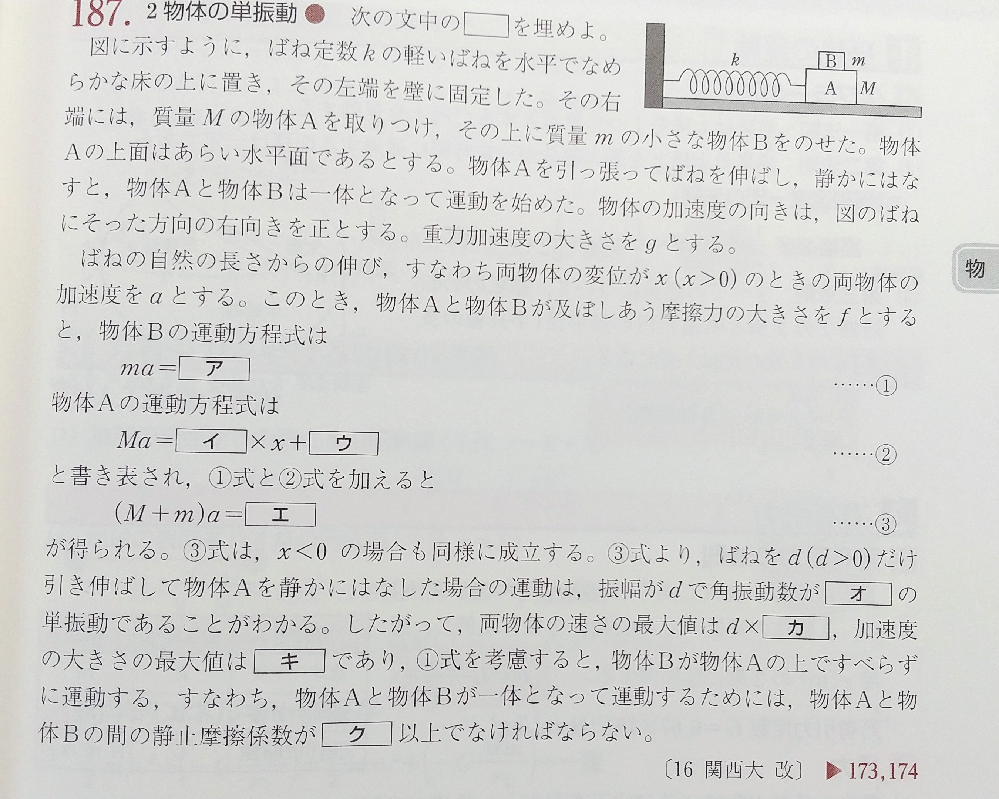 187. 2物体の単振動● 次の文中の□を埋めよ。
図に示すように，ばね定数kの軽いばねを水平でなめ
らかな床の上に置き，その左端を壁に固定した。その右
端には，質量Mの物体Aを取りつけ，その上に質量mの小さな物体Bをのせた。物体
Aの上面はあらい水平面であるとする。物体Aを引っ張ってばねを伸ばし，静かにはな
すと，物体Aと物体Bは一体となって運動を始めた。物体の加速度の向きは，図のばね
にそった方向の右向きを正とする。重力加速度の大きさをgとする。
ばねの自然の長さからの伸び，すなわち両物体の変位がx(x>0)のときの両物体の
加速度をaとする。このとき，物体Aと物体Bが及ぼしあう摩擦力の大きさをfとする
と，物体Bの運動方程式は
ma=ア ……①
物体Aの運動方程式は
Ma=イ×x+ウ ……②
と書き表され，①式と②式を加えると
(M+m)a=エ ……③
が得られる。③式は，x<0 の場合も同様に成立する。③式より，ばねをd(d>0)だけ
引き伸ばして物体Aを静かにはなした場合の運動は，振幅がdで角振動数がオの
単振動であることがわかる。したがって，両物体の速さの最大値はd×カ，加速度
の大きさの最大値はキであり，①式を考慮すると，物体Bが物体Aの上ですべらず
に運動する，すなわち，物体Aと物体Bが一体となって運動するためには，物体Aと物
体Bの間の静止摩擦係数がク以上でなければならない。
〔16 関西大 改〕 ▶173,174
k
B m
A M
物